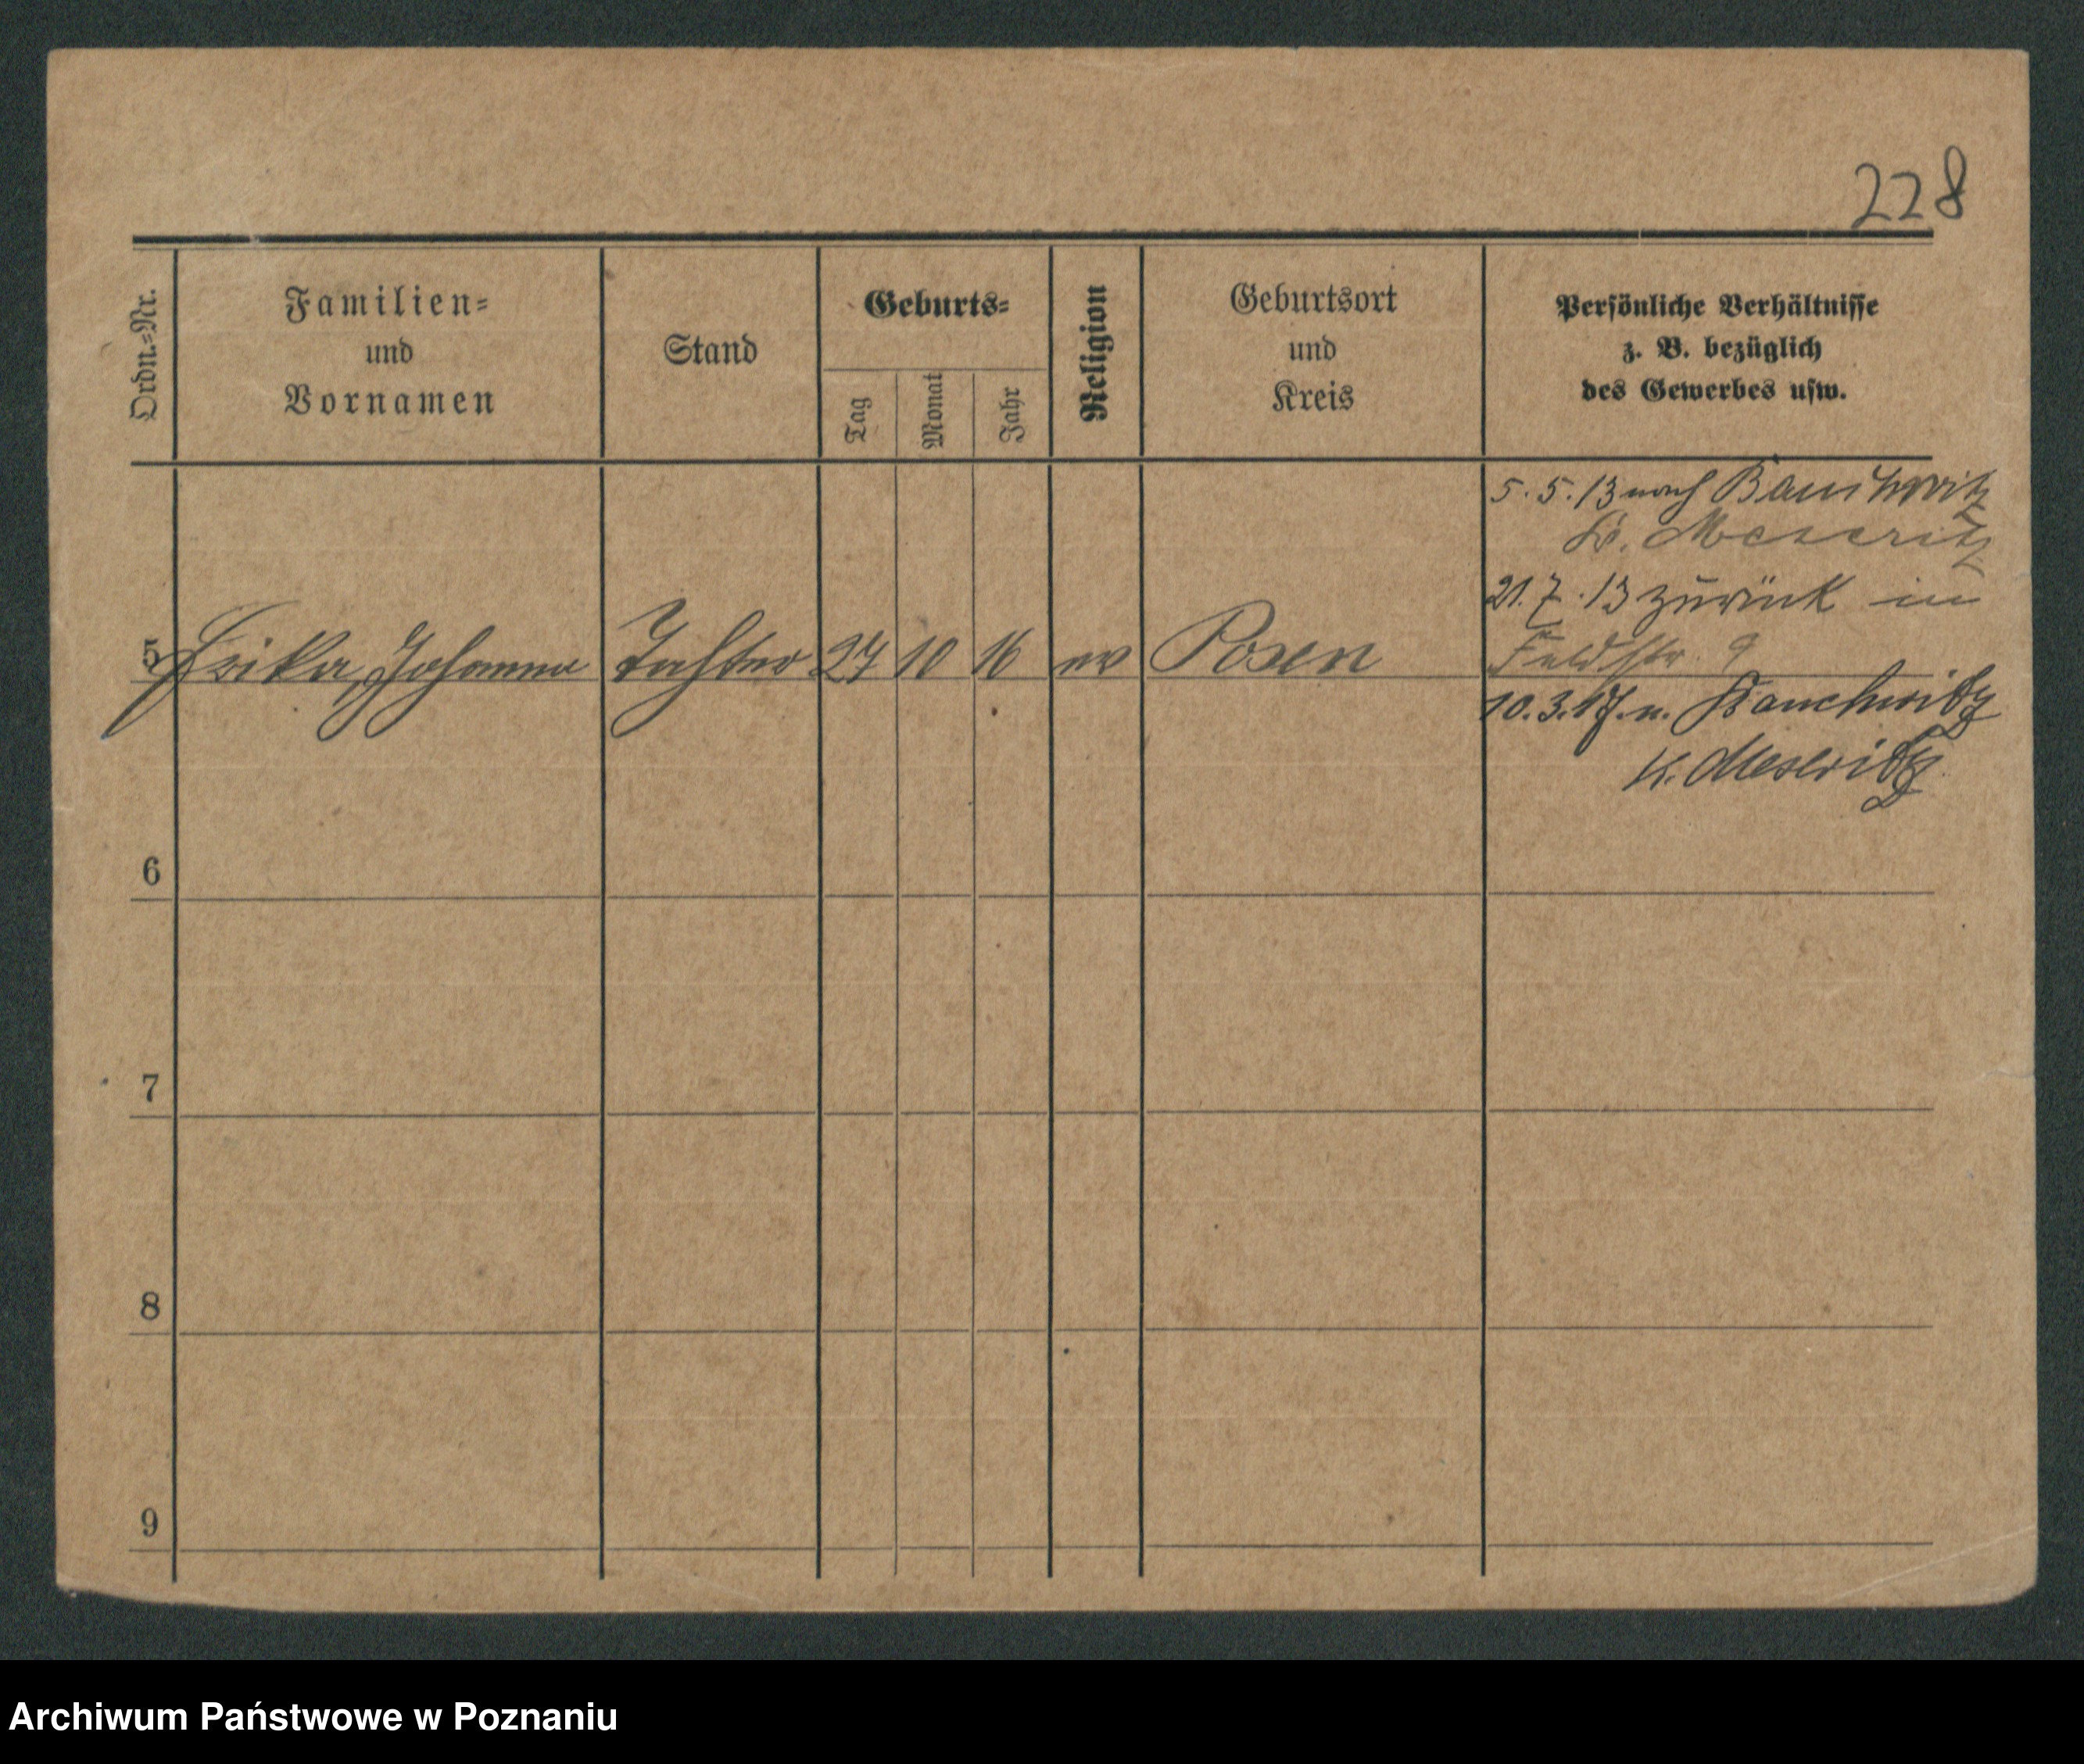 228
Ordn.=Nr.
Familien=
und
Vornamen
Stand
Geburts=
Tag
Monat
Jahr
Religion
Geburtsort
und
Kreis
Persönliche Verhältnisse
z. B. bezüglich
des Gewerbes usw.
5 Erika, Johanna Tochter 27 10 16 ev Posen
5. 5. 13 nach Bauchwitz
Kr. Meseritz
21. 7. 13 zurück in
Feldstr. 9
10. 3. 17. n. Bauchwitz
K. Meseritz
6
7
8
9
Archiwum Państwowe w Poznaniu